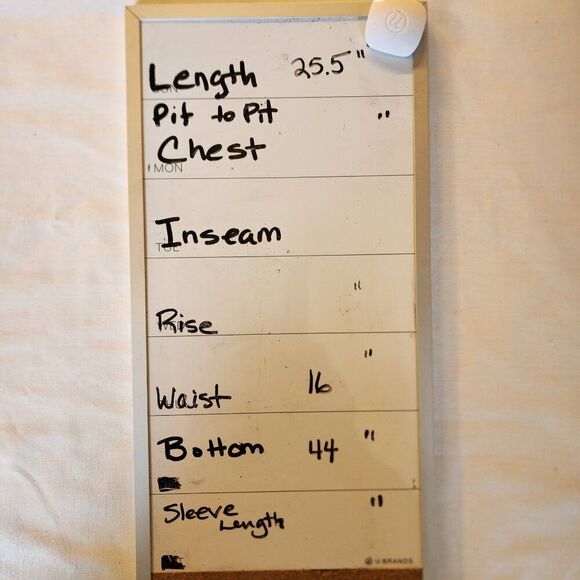 Length 25.5"
Pit to Pit "
Chest
MON
Inseam
TUE
Rise "
Waist 16 "
Bottom 44 "
Sleeve "
Length
U BRANDS